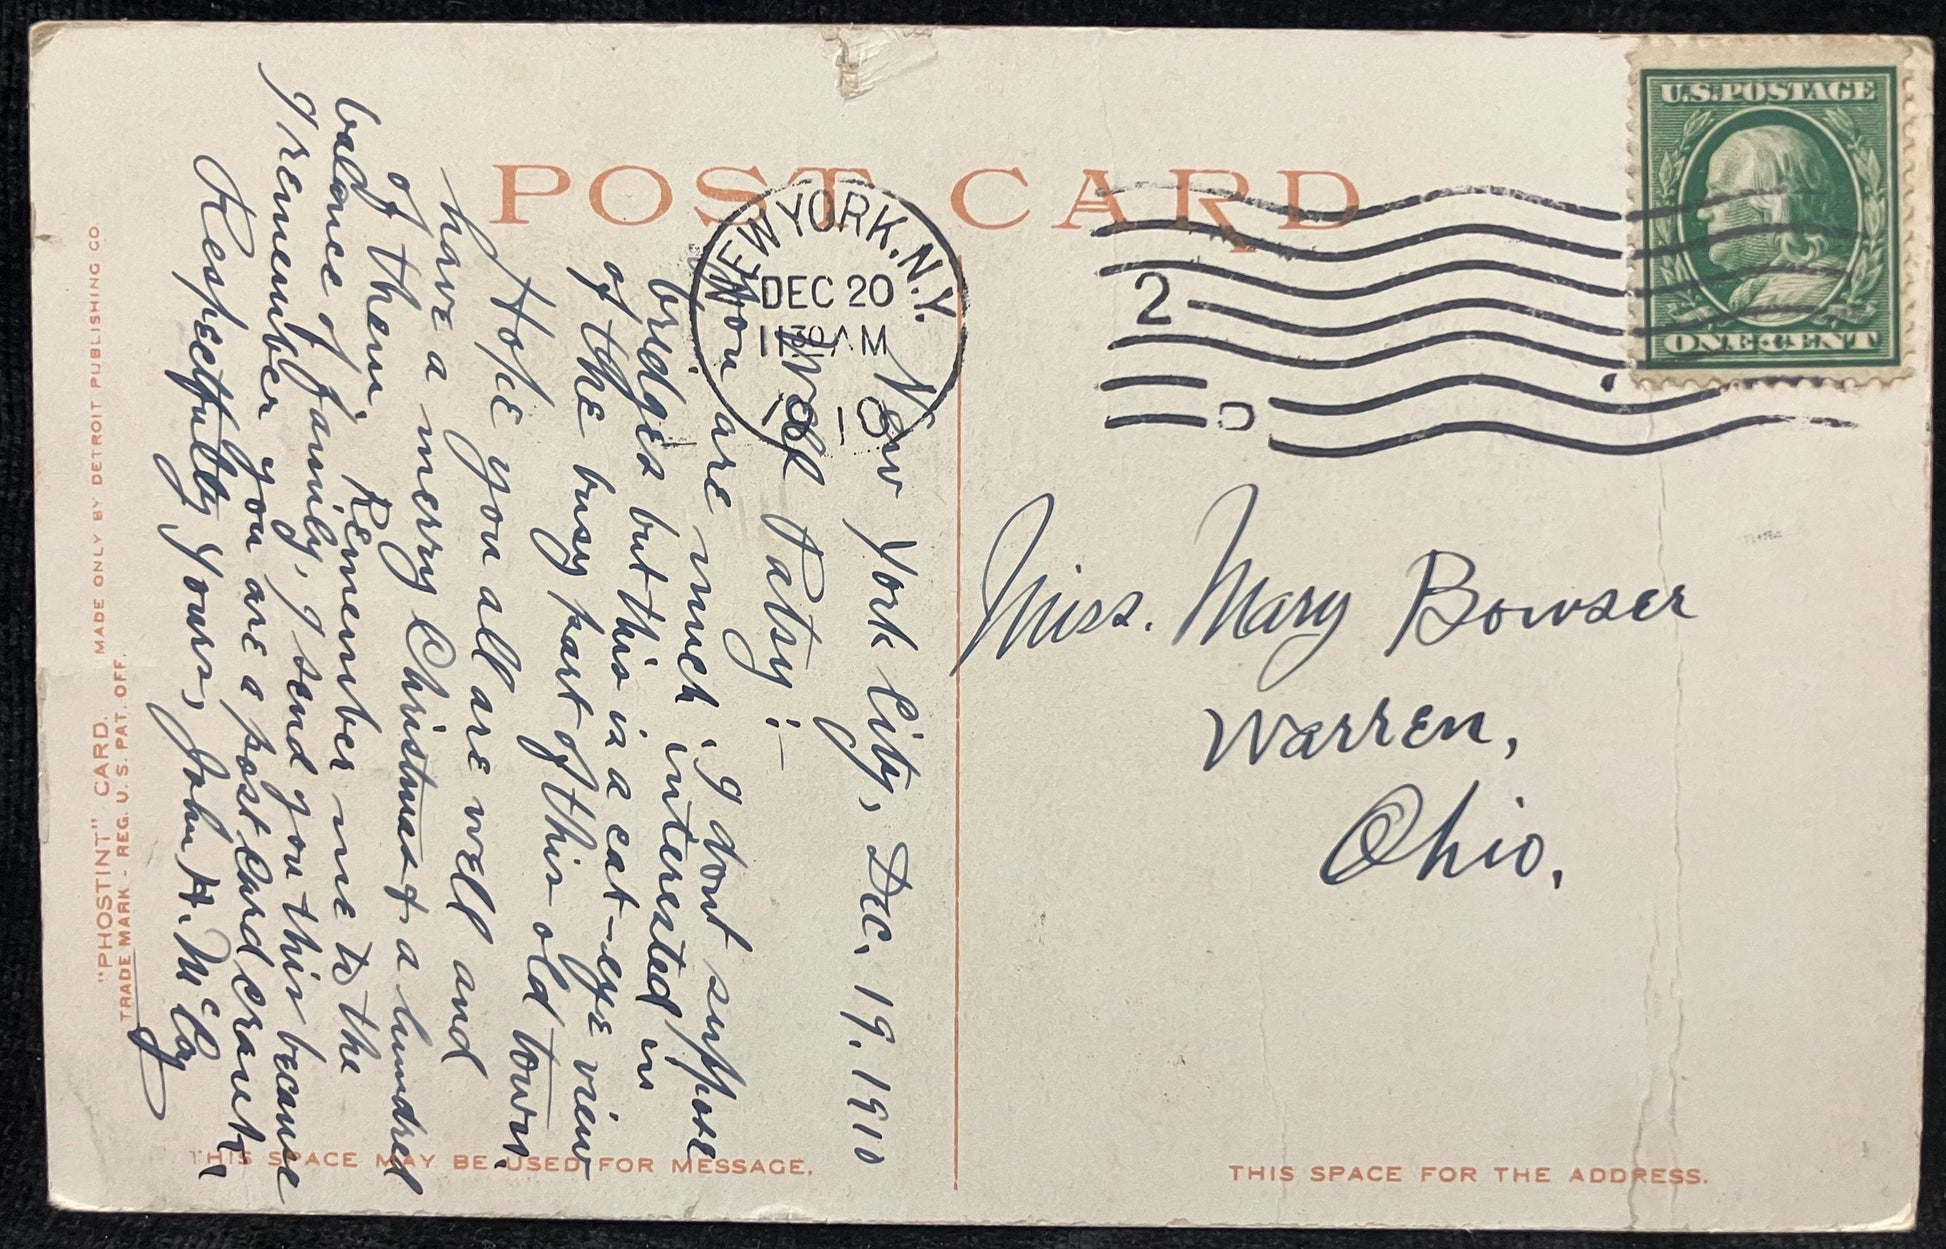 POST CARD
U.S. POSTAGE
ONE CENT
NEW YORK, N.Y.
DEC 20
1130 AM
2
New York City, Dec. 19. 1910
Patsy :-
You are much, I dont suppose
bridges but this is a cat-eye view
of the busy part of this old town.
Hope you all are well and
have a merry Christmas & a hundred
of them. Remember me to the
balance of family, I send you this because
I remember you are a post card crank.
Respectfully Yours, John H. McCoy
interested in
Miss. Mary Bowser
Warren,
Ohio.
"PHOSTINT" CARD. MADE ONLY BY DETROIT PUBLISHING CO.
TRADE MARK - REG. U. S. PAT. OFF.
THIS SPACE MAY BE USED FOR MESSAGE.
THIS SPACE FOR THE ADDRESS.